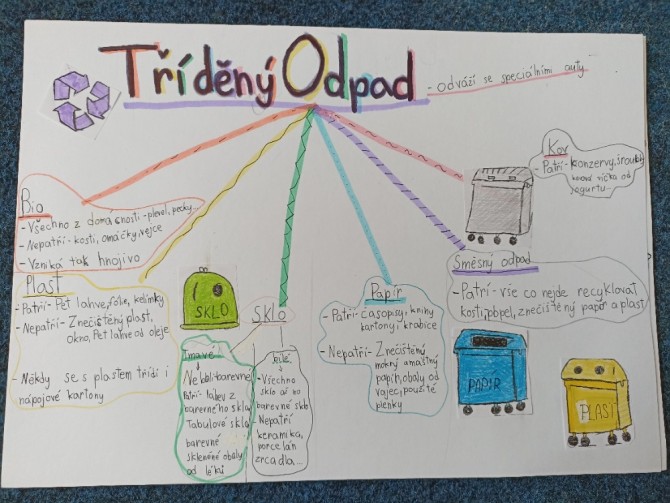 Tříděný Odpad
- odváží se speciálními auty
Bio
- Všechno z domacnosti - plevel, pecky...
- Nepatří - kosti, omáčky, vejce
- Vzniká tak hnojivo
Plast
- Patří - Pet lahve, folie, kelímky
- Nepatří - Znečištěný plast,
okno, Pet lahve od oleje
- Někdy se s plastem třídí i
nápojové kartony
SKLO
Sklo
Tmavé
barevné
Patří - lahev z
barevného skla
Tabulové sklo
barevné
skleněné obaly
od léků
Bílé
- Všechno
sklo až na
barevné sklo
- Nepatří
keramika,
porcelán
zrcadla...
Papír
- Patří - časopisy, knihy
kartony i krabice
- Nepatří - Znečištěný
mokrý a mastný
papír, obaly od
vajec, použité
plenky
Kov
- Patří - konzervy, šrouby
kovová víčka od
jogurtu...
Směsný odpad
- Patří - vše co nejde recyklovat
kosti, popel, znečištěný papír a plast
PAPÍR
PLAST